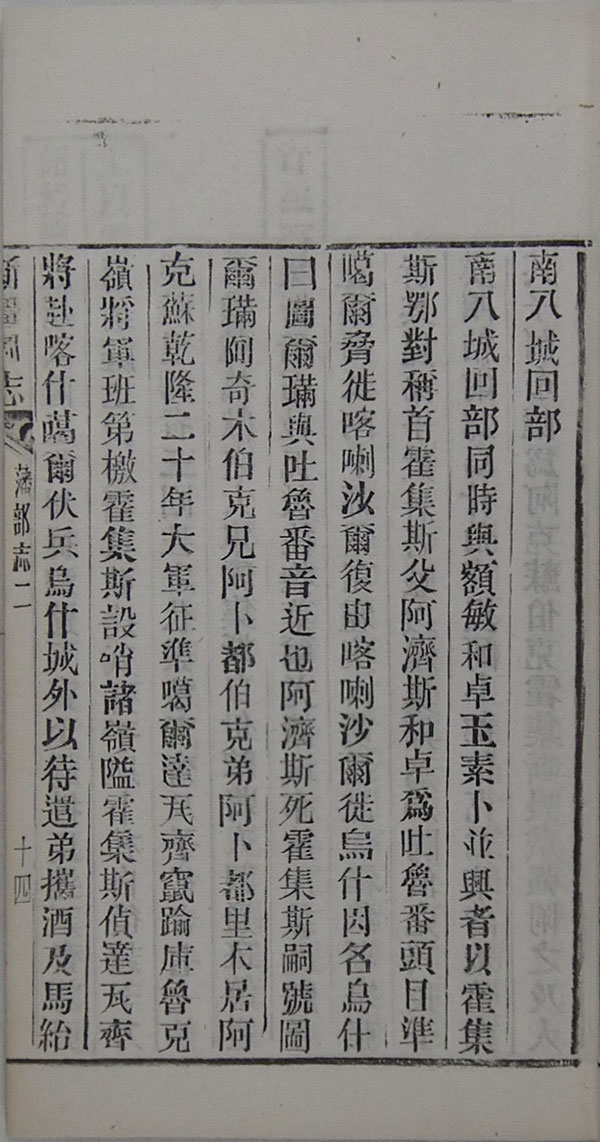 南八城回部
南八城回部同時與額敏和卓玉素卜並興者以霍集
斯鄂對稱首霍集斯父阿濟斯和卓爲吐魯番頭目準
噶爾脅徙喀喇沙爾復由喀喇沙爾徙烏什因名烏什
曰圖爾璊與吐魯番音近也阿濟斯死霍集斯嗣號圖
爾璊阿奇木伯克兄阿卜都伯克弟阿卜都里木居阿
克蘇乾隆二十年大軍征準噶爾達瓦齊竄踰庫魯克
嶺將軍班第檄霍集斯設哨諸嶺隘霍集斯偵達瓦齊
將赴喀什噶爾伏兵烏什城外以待遣弟攜酒及馬紿
志 藩部志二 十四